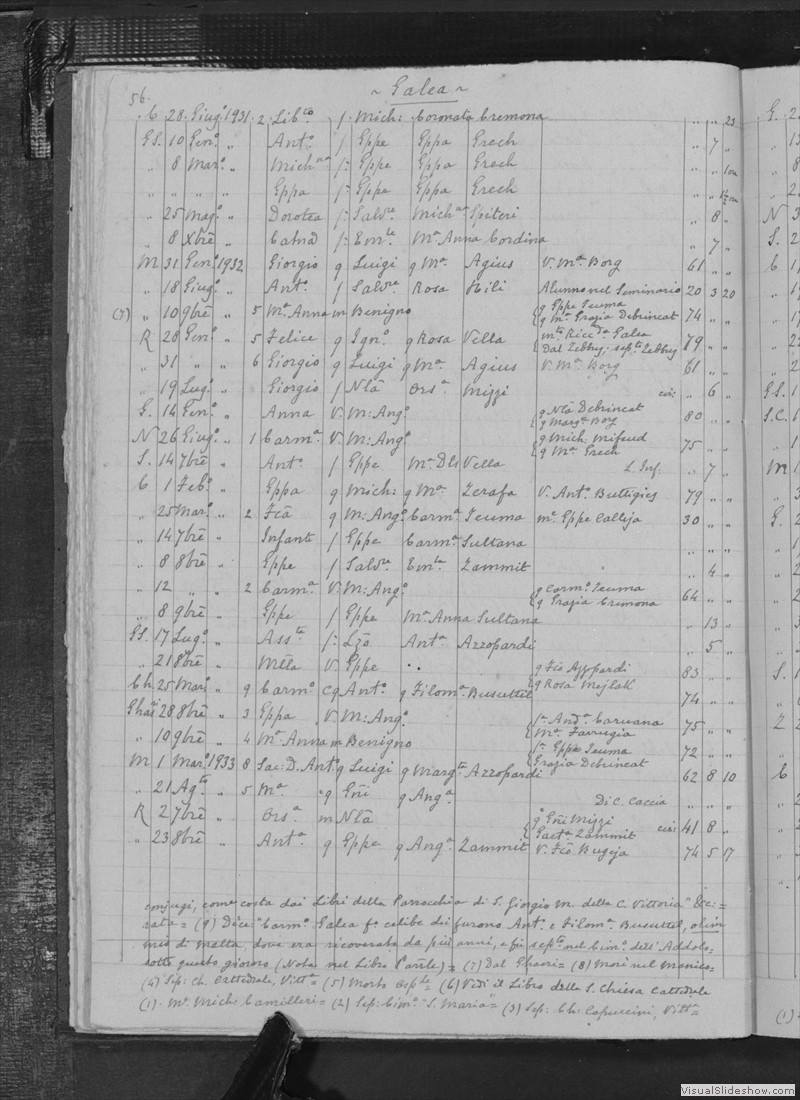 56.
~ Galea ~
C 28 Giug° 1931 2 Lib.to f. Mich: Coronata Cremona " " 23
GS. 10 Gen° " Ant° f Gppe Gppa Grech " 7 "
" 8 Mar° " f: Gppe Gppa Grech " "
" " " " Gppa f: Gppe Gppa Grech " "
" 25 Mag° " Dorotea f: Salv.re Spiteri " 8 "
" 8 Xbre " f: Em.le Mª Anna Cordina " 7 "
M 31 Gen° 1932 Giorgio q Luigi q Mª Agius V. Mª Borg 61 " "
" 18 Giug° " Ant° f Salv.re Rosa Hili Alunno nel Seminario 20 3 20
(7) " 10 9bre " 5 Mª Anna m Benigno q Gppe Teuma
q Mª Grazia Debrincat 74 " "
R 28 Gen° " 5 Felice q Ign° q Rosa Vella Galea
Dal Zebbug; sep.to Zebbug 79 " "
" 31 " " 6 Giorgio q Luigi q Mª Agius V. Mª Borg 61 " "
" 19 Lug° " Giorgio f Nla Ors.a Mizzi " 6 "
G. 14 Gen° " Anna V. M: Ang° q Nla Debrincat
q Marg.ta Borg 80 " "
N 26 Giug° " 1 Carm.a V. M: Ang° q Mich. Mifsud
q Mª Grech 75 " "
S. 14 7bre " Ant° f Gppe Mª Vella " 7 "
C 1 Feb° " Gppa q Mich: q Mª Zerafa V. Ant° Buttigieg 79 " "
" 25 Mar° " 2 Fca q M: Ang° Carm.a Teuma m.e Gppe Callija 30 " "
" 14 7bre " Infant f Gppe Carm.a Sultana " " "
" 8 8bre " Gppe f Salv.re Em.la Zammit " 4 "
" 12 " " 2 Carm.a V. M: Ang° q Carm° Teuma
q Grazia Cremona 64 " "
" 8 9bre " Gppe f Gppe Mª Anna Sultana " 13 "
GS. 17 Lug° " Ass.ta f: Lzo Ant.a Azzopardi " 5 "
" 21 8bre " V. Gppe " q Fco Azzopardi
q Rosa Mejlak 83 " "
Ch 25 Mar° " 9 Carm° cq Ant° q Filom.a Busuttil 74 " "
Ghar 28 8bre " 3 Gppa V M: Ang° f. And.a Caruana
Mª Farrugia 75 " "
" 10 9bre " 4 Mª Anna m Benigno f. Gppe Teuma
Grazia Debrincat 72 " "
M 1 Mar° 1933 8 Sac: D. Ant° q Luigi q Marg.ta Azzopardi 62 8 10
" 21 Ag.to " 5 Mª q Gni q Ang.a Di C. Caccia " "
R 2 7bre " Ors.a m Nla q Gni Mizzi
Zammit 41 8 "
" 23 8bre " Ant.a q Gppe q Ang.a Zammit V. Fco Bugeja 74 5 17
conjugi, come costa dai Libri della Parrocchia di S. Giorgio M. della C. Vittoria"
(9) Dice: "Carm° Galea f° celibe dei furono Ant° e Filom.a Busuttil,
di Malta, dove era ricoverato da più anni, e fu sep.to nel Cim° dell' Addolo=
sotto questo giorno (Nota nel Libro Parr.le) = (7) Dal Ghasri = (8) Morì nel Manico=
(4) Sep: Ch. Cattedrale, Vitt.a = (5) Morto = (6) Vedi il Libro della S. Chiesa Cattedrale
(1). M.e Mich: Camilleri = (2) Sep: Cim° "S. Maria" = (3) Sep: Ch: Capuccini, Vitt.a =
VisualSlideshow.com